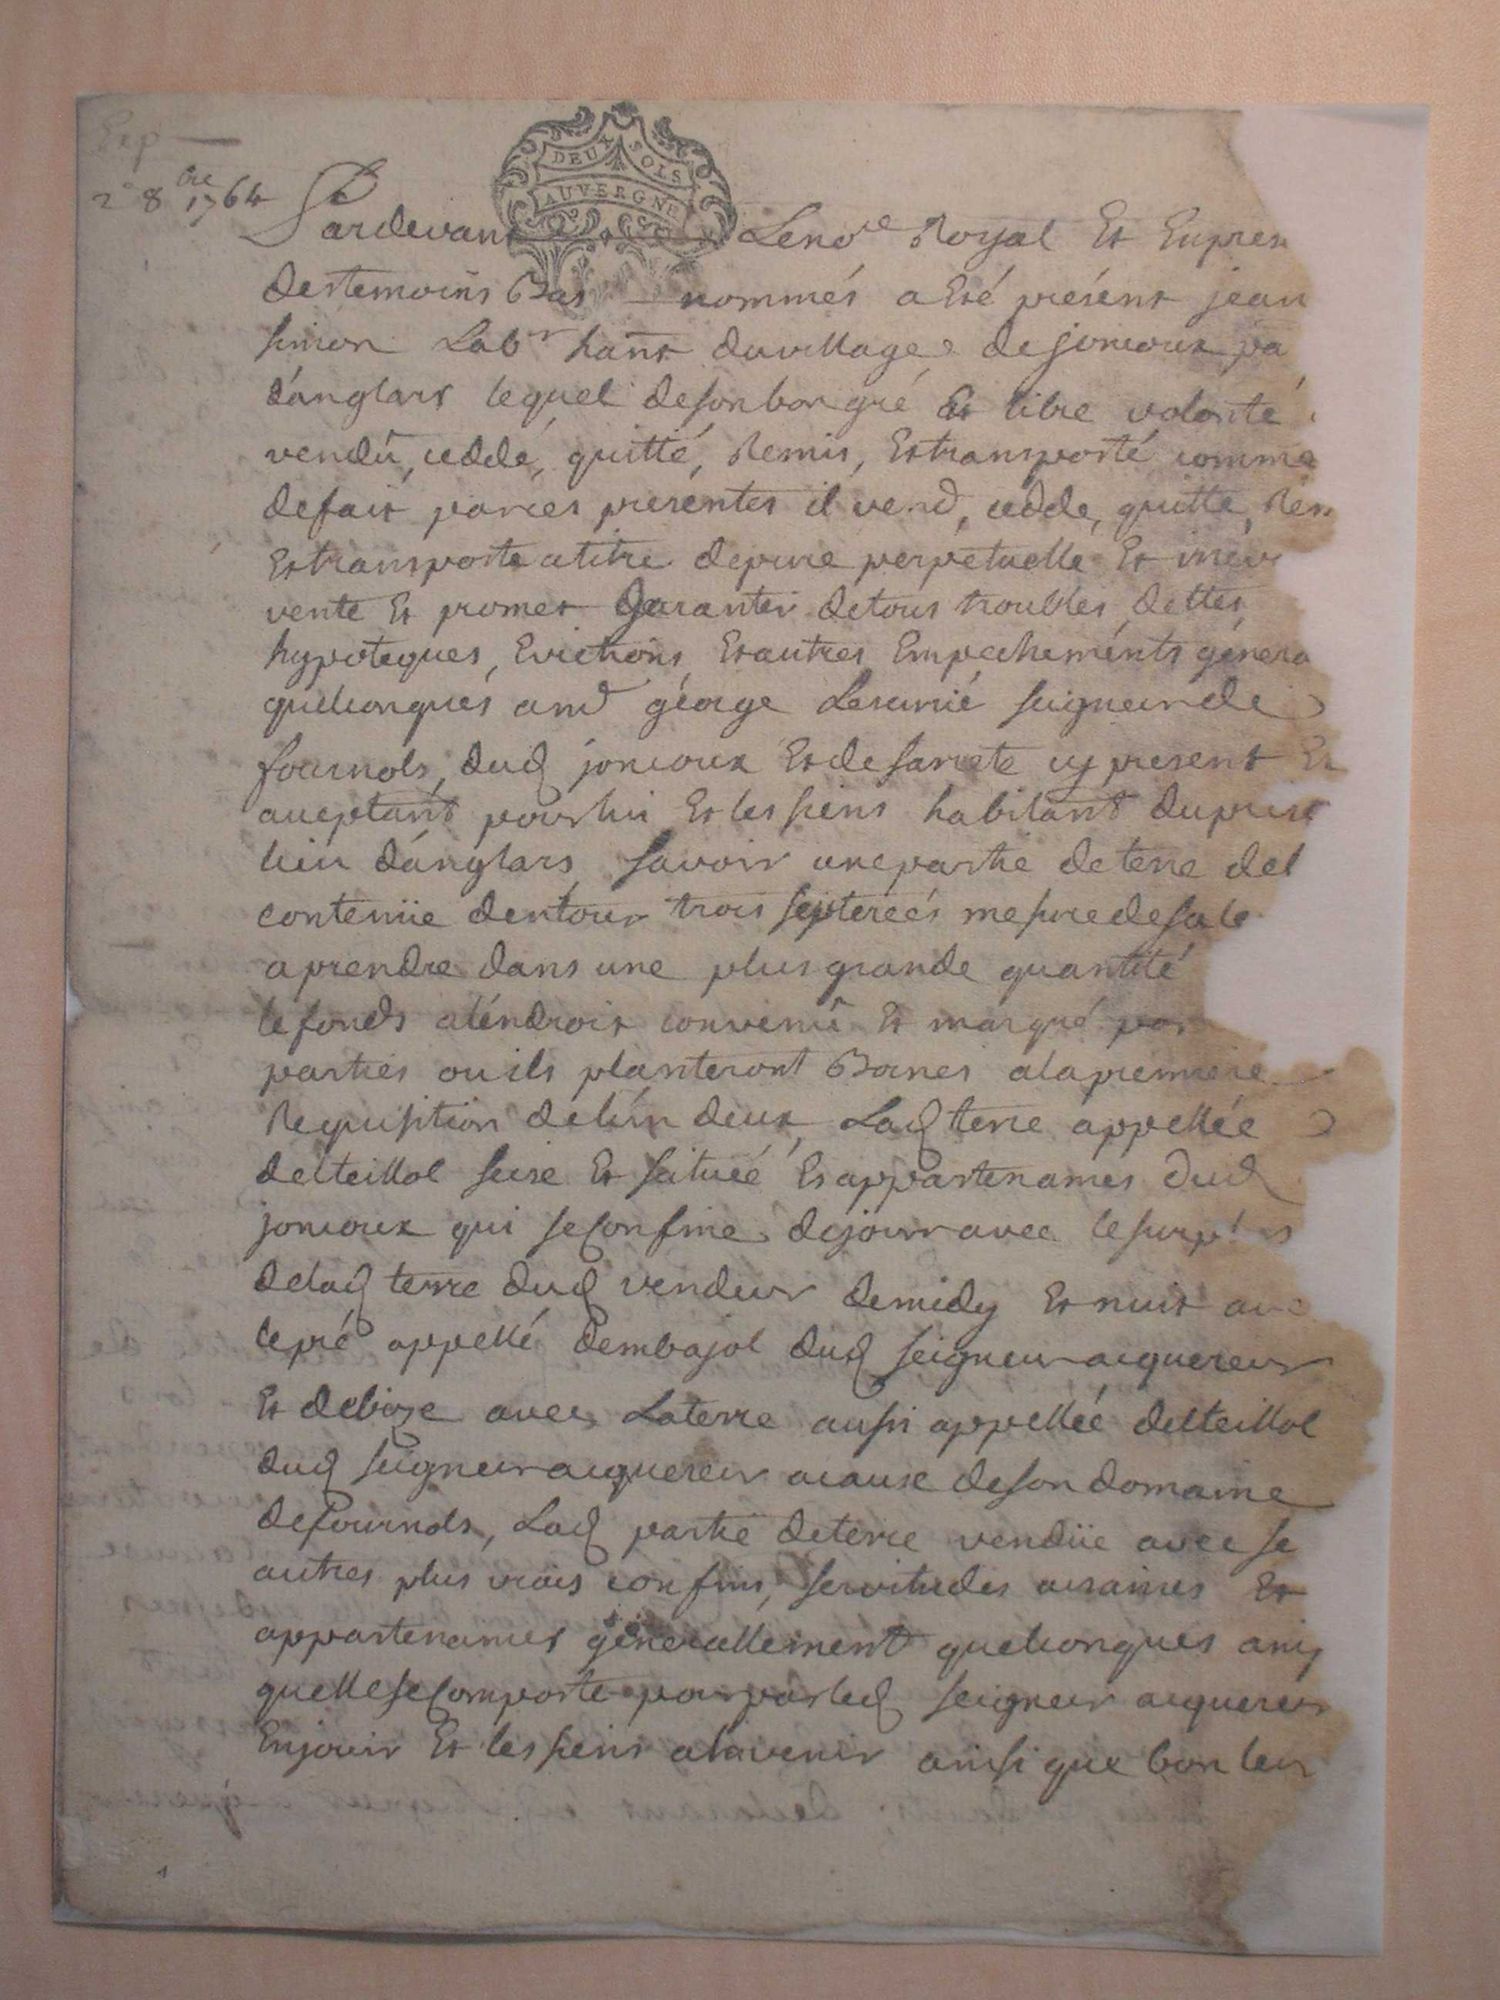 Exp
2e 8bre 1764
DEUX SOLS
AUVERGNE
Pardevant Le nore Royal Et En presen
des temoins Bas nommés a Eté présent jean
simon Labr hant du village de joncoux pa
d'anglars lequel de son bon gré Et libre volonté
vendû, cedde, quitté, Remis, Et transporté comme
de fait par ces presentes il vend, cedde, quitte, Rem
Et transporte a titre de pure perpetuelle Et irrev
vente Et promet Garantir de tous troubles, dettes,
hypoteques, Evictions, Et autres Empechements genera
quelconques a mr géorge Seigneur de
fournols, dud joncoux Et de sarrete cy present Et
acceptant pour lui Et les siens habitant du prese
lieu d'anglars, savoir une partie de terre del
contenüe d'entour trois septerées mesure de sale
a prendre dans une plus grande quantité
le fonds a l'endroit convenû Et marqué par
parties ou ils planteront Bornes a la premiere
Requisition de l'un deux, Lad terre appellée
delteillol sise Et scituée Es appartenances dud
joncoux qui se Confine de jour avec le surplus
de lad terre dud vendeur de midy Et nuit avec
le pré appellé dembajol dud seigneur acquereur
Et de bize avec La terre aussi appellée delteillol
dud seigneur acquereur a cause de son domaine
de fournols, Lad partie de terre vendüe avec se
autres plus vrais confins, servitudes aisaines Et
appartenances générallement quelconques ainsy
quelle se Comporte pour par led seigneur acquereur
En jouir Et les siens a l'avenir ainsi que bon leur